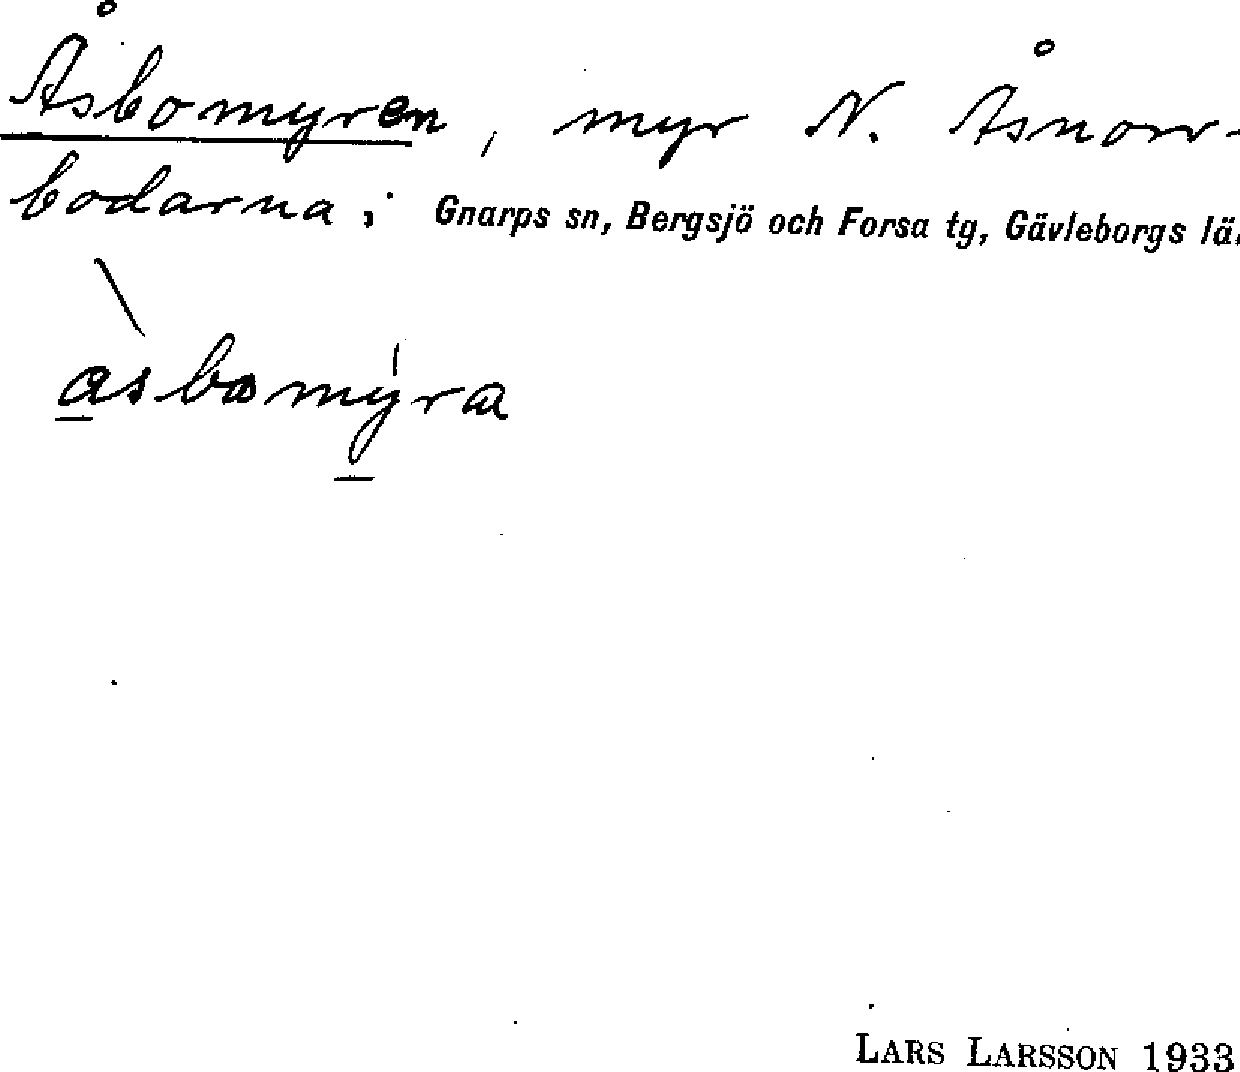 Åsbomyren, myr N. Åsnorr-
bodarna; Gnarps sn, Bergsjö och Forsa tg, Gävleborgs lä
àsbomýra
LARS LARSSON 1933